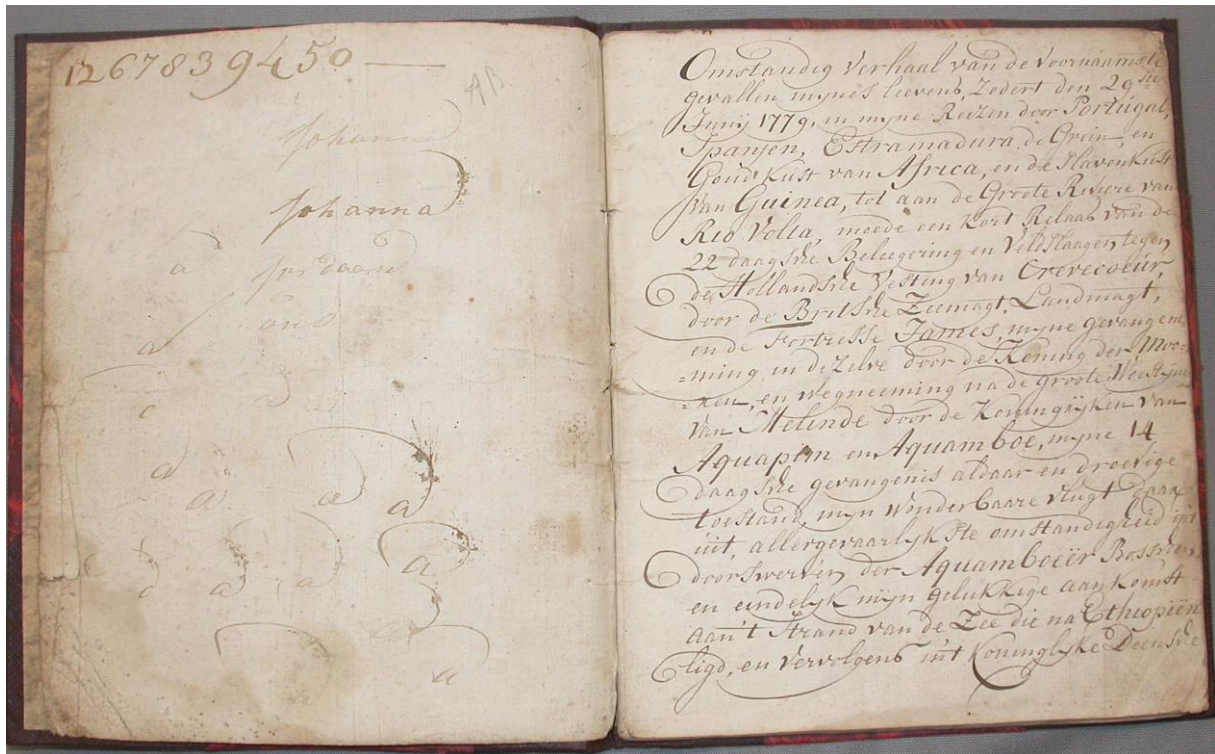 12 6 7 8 3 9 4 5 0
AB
Johanna
Johanna
a
a
a
a
a
a
a
a
a
a
a
Omstandig Verhaal van de Voornaamste
gevallen mijnes leevens, Zedert den 29ste
Junij 1779, in mijne Reizen door Portugal,
Spanjen, Estramadura, de Grein, en
Goud Kust van Africa, en de Slavenkust
van Guinea, tot aan de Groote Riviere van
Rio Volta, meede een Kort Relaas van de
22 daagsche Beleegering en Veldslaagen, tegen
de Hollandsche Vesting van Crevecoeur,
door de Britsche Zeemagt, Landmagt,
en de Fortresse James, mijne gevangene
=ming in dezelve door de Koning der Moo=
=ren, en wegneeming na de groote
van Melinde door de Koningrijken van
Aquapim en Aquamboe, mijne 14
daagsche gevangenis aldaar en droevige
toestand, mijn wonderbaare vlugt daar
uit, allergevaarlijkste omstandigheid in't
doorswerven der Aquamboeër Bosschen,
en eindelijk mijn gelukkige aankomst
aan't Strand van de Zee die na Ethiopiën
ligd, en vervolgens in't Koninglijke Deensche